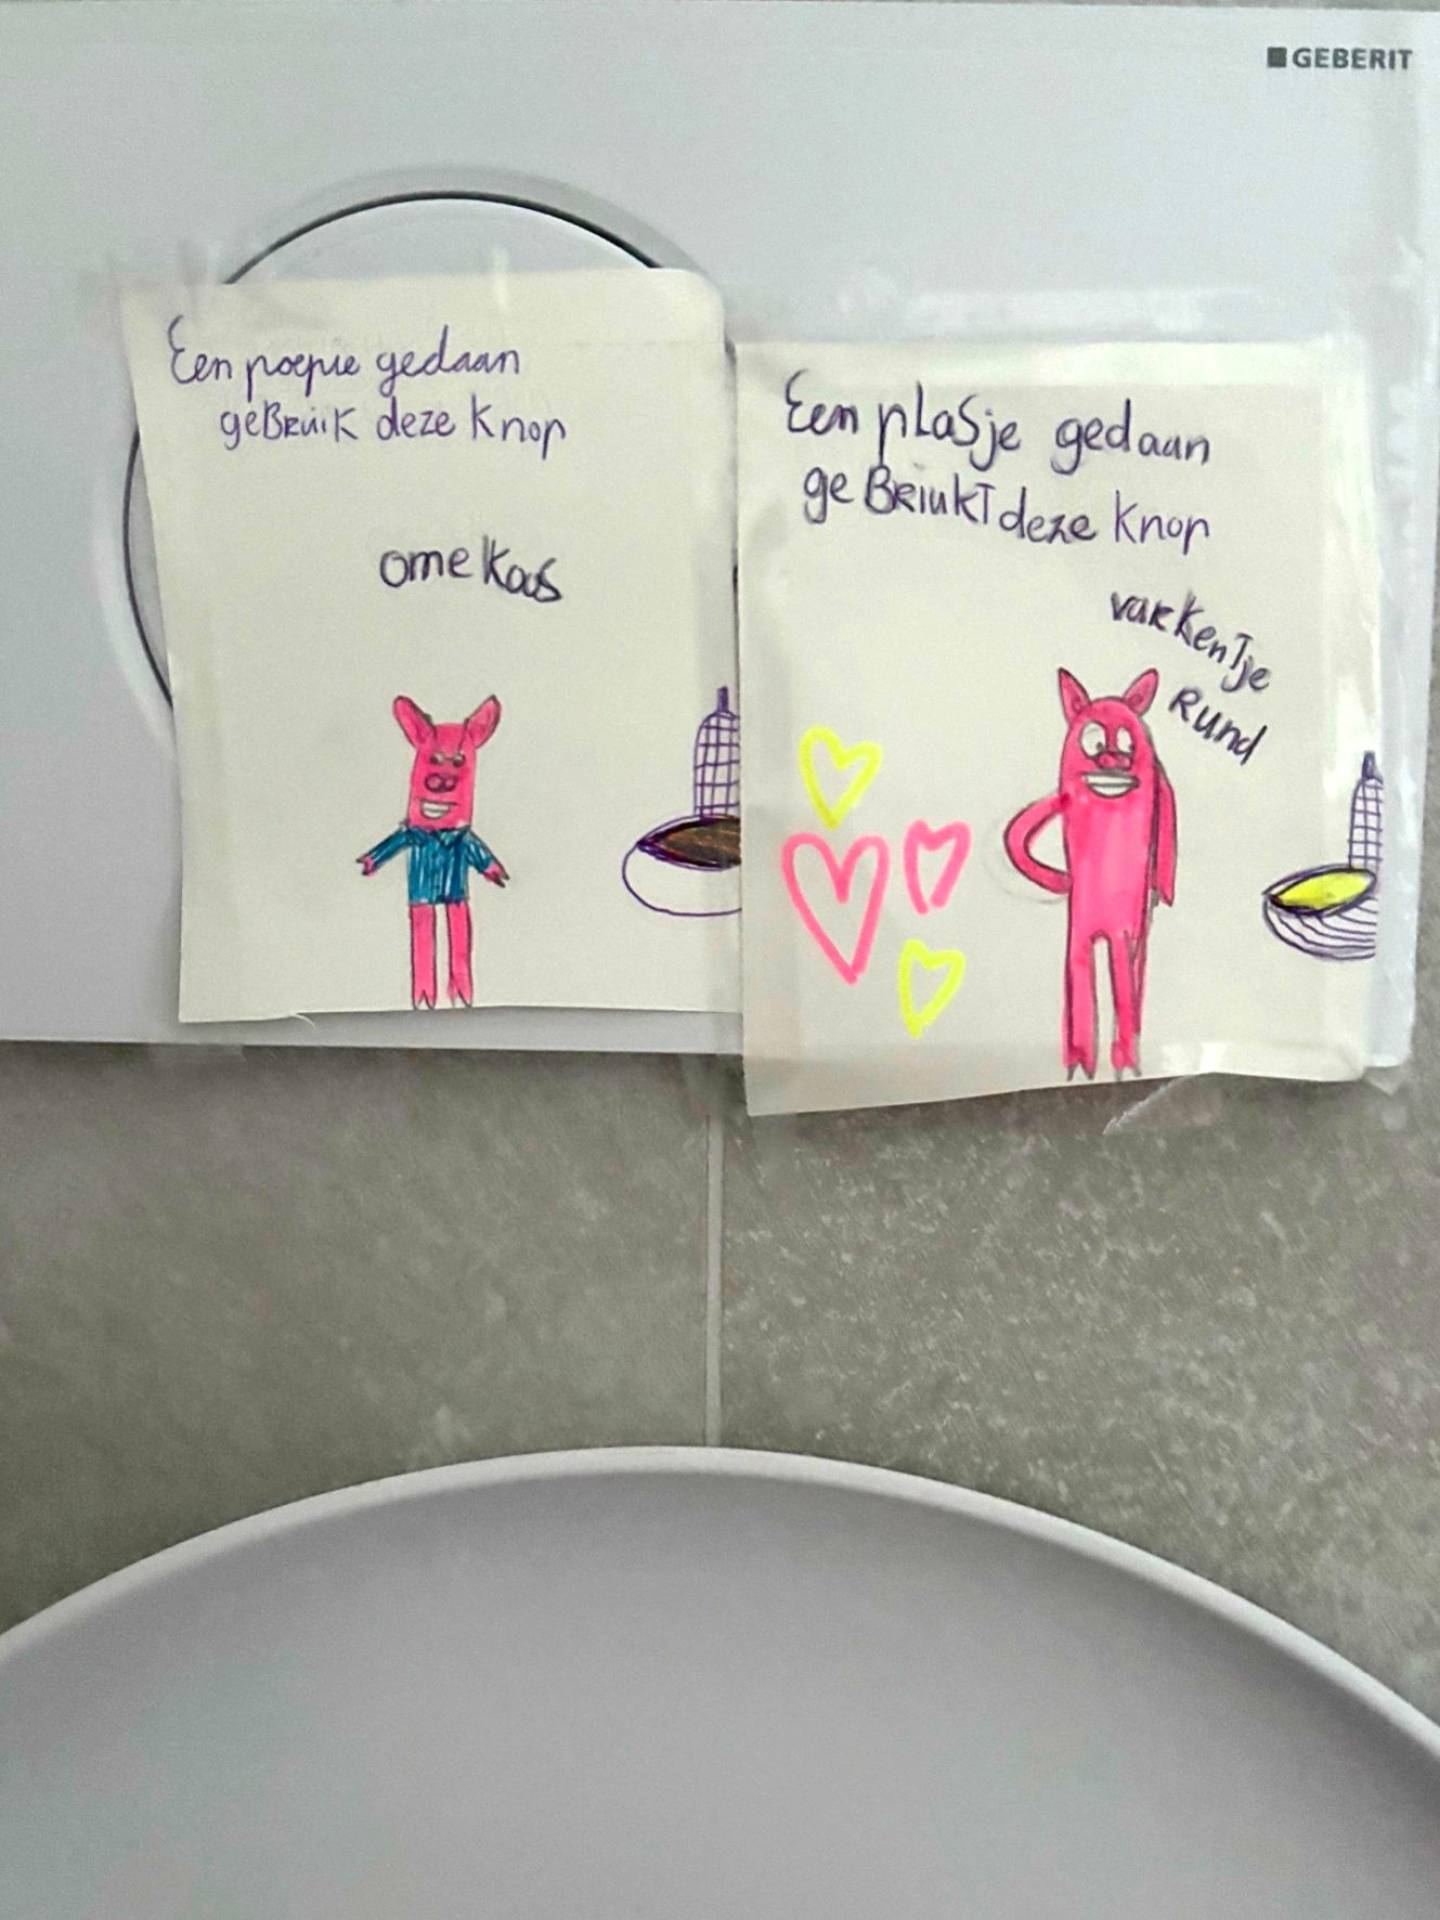 GEBERIT
Een poepie gedaan
geBruik deze knop
ome Koos
Een plasje gedaan
ge BriukT deze knop
varkenTje
Rund